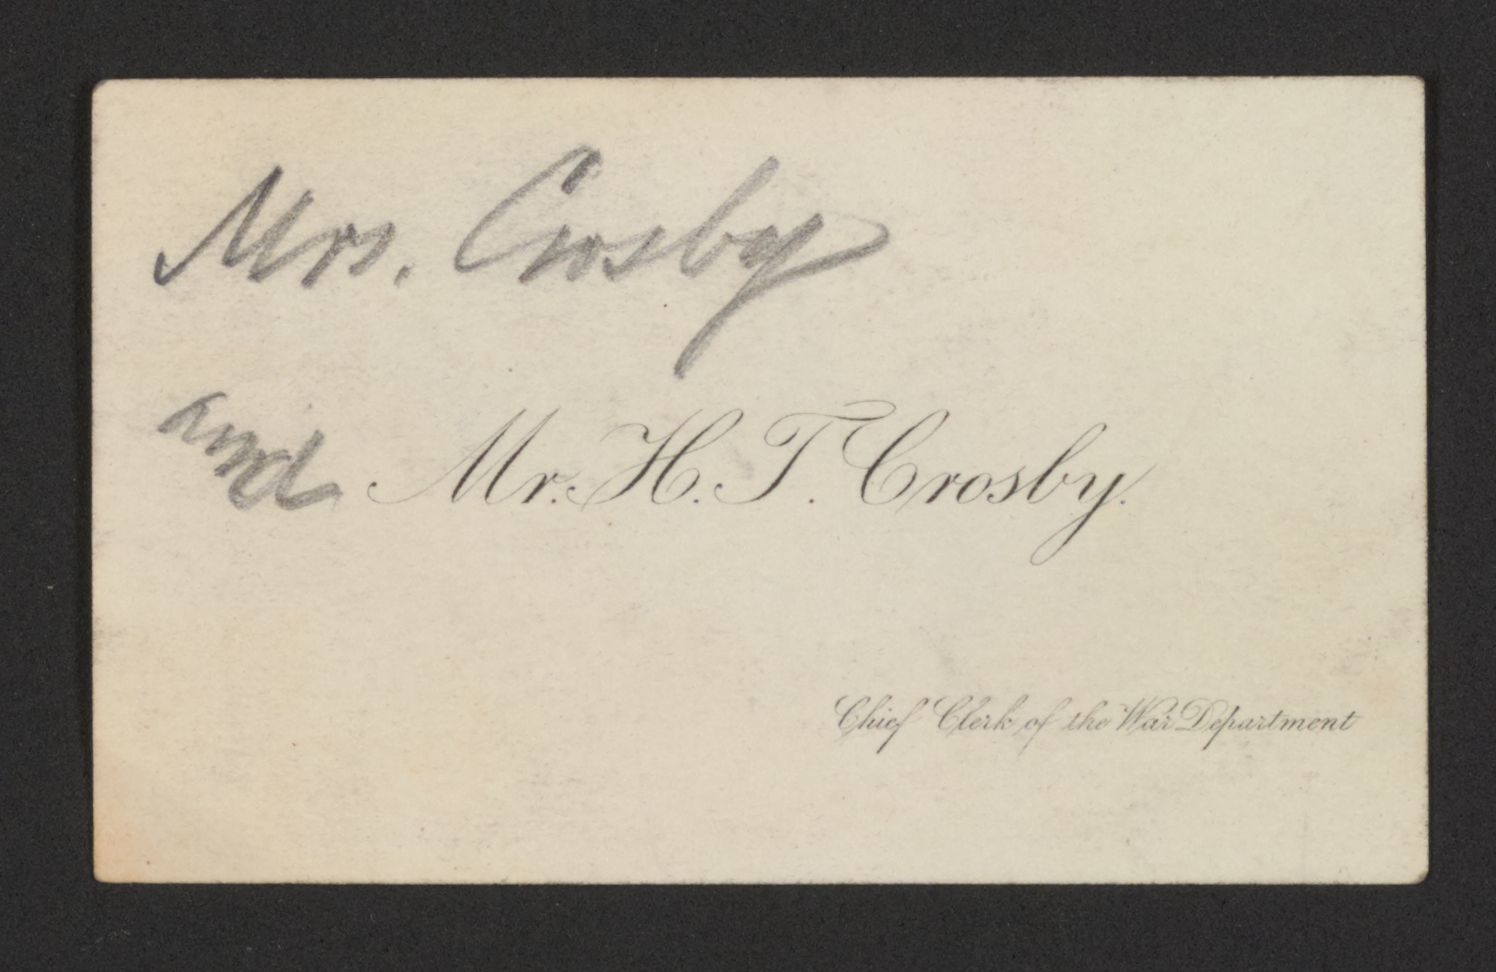 Mrs. Crosby
and Mr. H. T. Crosby.
Chief Clerk of the War Department